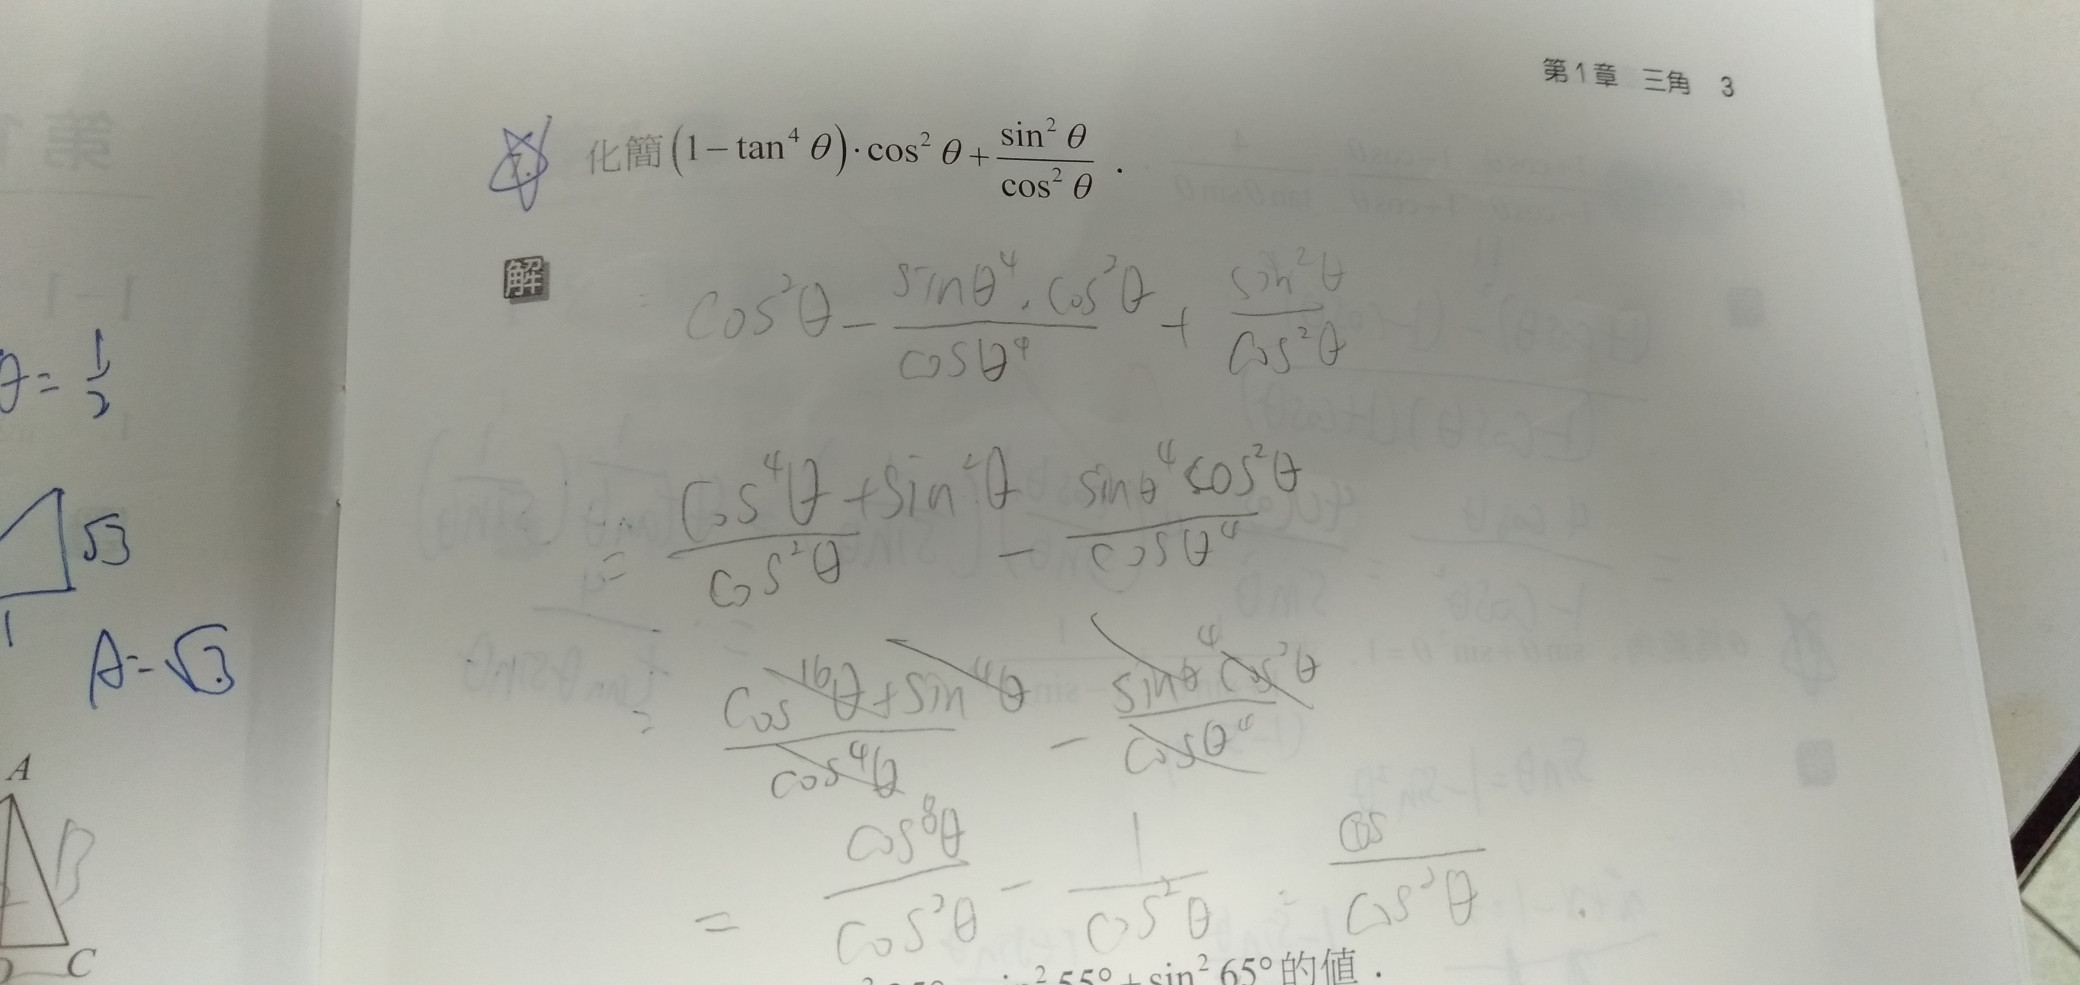 第1章 三角 3
化簡(1-tan⁴ θ)·cos² θ+sin² θ/cos² θ.
解
= cos²θ - sinθ⁴·cos²θ/cosθ⁴ + sin²θ/cos²θ
= cos⁴θ+sin²θ/cos²θ - sinθ⁴cos²θ/cosθ⁴
= cos¹⁶θ+sin⁴θ/cos⁴θ - sinθ⁴cos²θ/cosθ⁴
= cos⁸θ/cos²θ - 1/cos²θ = cos/cos²θ
55°+sin² 65°的值.
θ=1/2
√3
1
A=√3
A
B
C